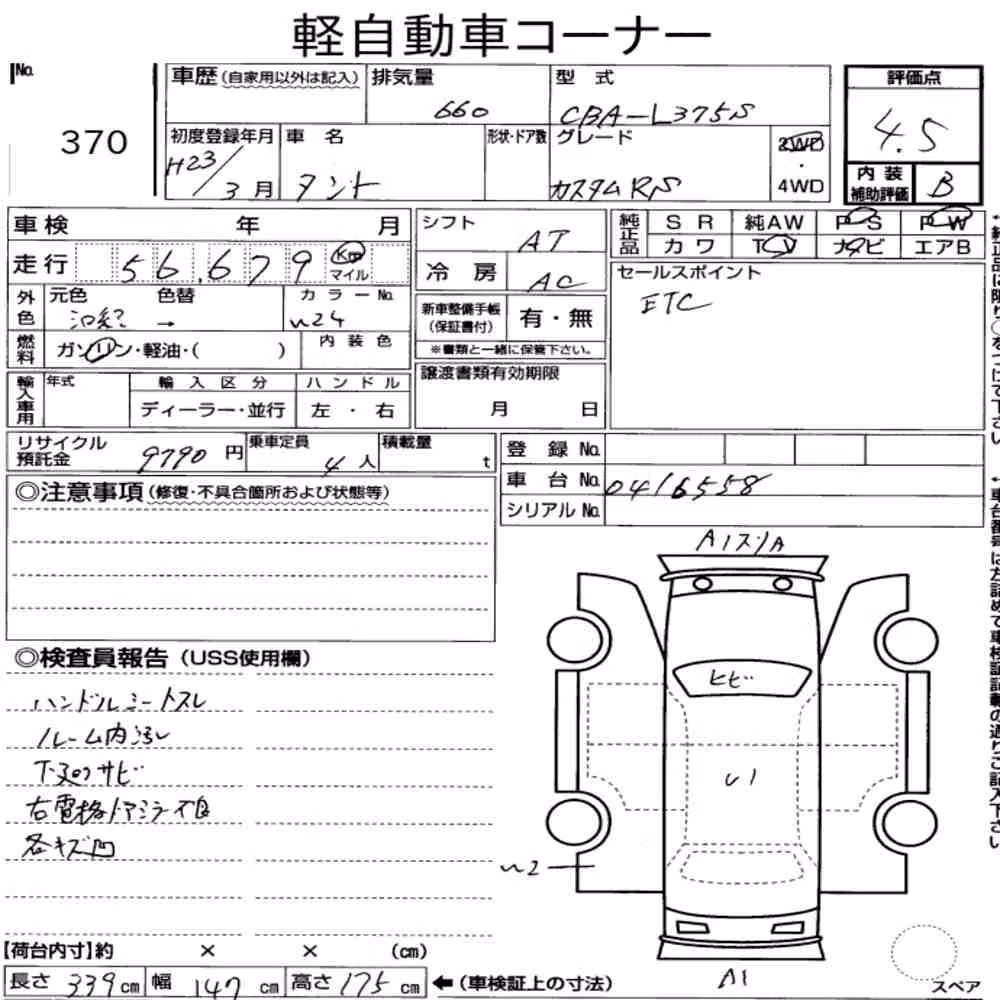 軽自動車コーナー
No. 370
車歴(自家用以外は記入) 排気量 660 型式 CBA-L375S
評価点 4.5
初度登録年月 H23/3月 車名 タント 形状・ドア数 グレード カスタムRS 2WD・4WD
内装補助評価 B
車検 年 月 シフト AT
純正品 SR 純AW PS PW
カワ TV ナビ エアB
走行 56,679 Km マイル
冷房 AC
セールスポイント
ETC
外色 元色 色替 → カラーNo.
新車整備手帳(保証書付) 有・無
※書類と一緒に保管下さい。
燃料 ガソリン・軽油・( ) 内装色
輸入車用 年式 輸入区分 ハンドル
ディーラー・並行 左・右
譲渡書類有効期限
月 日
リサイクル預託金 9790円 乗車定員 4人 積載量 t
登録No.
車台No. 0416558
シリアルNo.
◎注意事項(修復・不具合箇所および状態等)
A1スリA
◎検査員報告(USS使用欄)
ハンドルシートスレ
ルーム内汚レ
下廻りサビ
右電格ドアミラー不良
各キズ凹
ヒビ
U1
A1
【荷台内寸】約 × × (cm)
長さ 339cm 幅 147cm 高さ 175cm ←(車検証上の寸法)
スペア
*純正品に限り○をつけて下さい
*車台番号は左詰めで車検証記載の通りご記入下さい